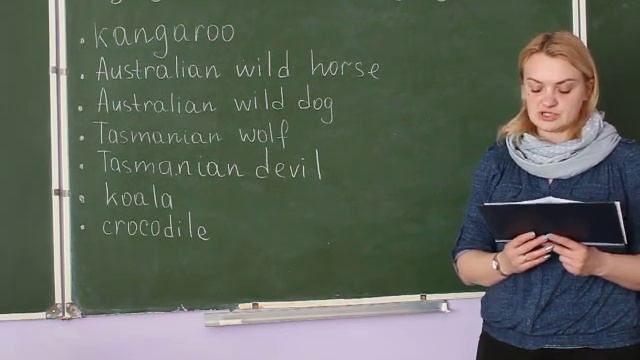 kangaroo
Australian wild horse
Australian wild dog
Tasmanian wolf
Tasmanian devil
koala
crocodile